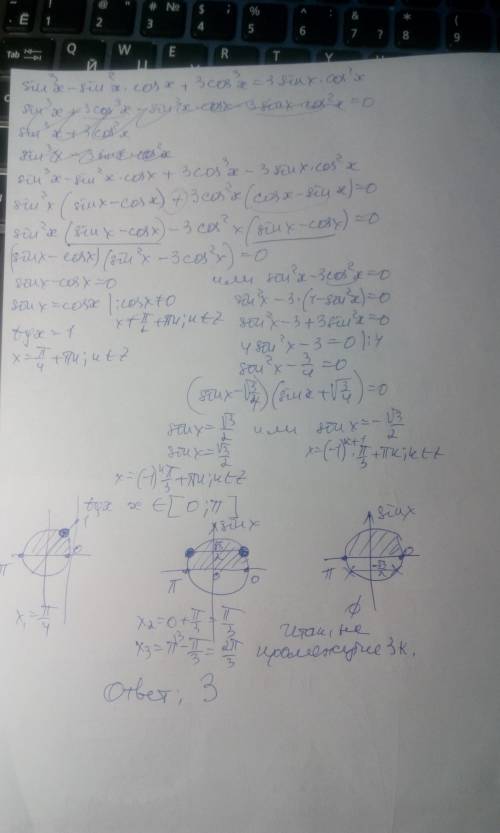 sin³x - sin²x · cosx + 3cos³x = 3 sinx · cos²x
sin³x + 3cos³x - sin²x · cosx - 3 sinx · cos²x = 0
sin³x + 3cos²x
sin³x - 3 sinx cos²x
sin³x - sin²x · cosx + 3cos³x - 3 sinx · cos²x
sin²x (sinx - cosx) + 3cos²x (cosx - sinx) = 0
sin²x (sinx - cosx) - 3cos²x (sinx - cosx) = 0
(sinx - cosx) (sin²x - 3cos²x) = 0
sinx - cosx = 0 или sin²x - 3cos²x = 0
sinx = cosx | : cosx ≠ 0 sin²x - 3 · (1 - sin²x) = 0
x ≠ π/2 + πk; k ∈ Z sin²x - 3 + 3 sin²x = 0
tgx = 1 4 sin²x - 3 = 0 | : 4
x = π/4 + πk; k ∈ Z sin²x - 3/4 = 0
(sinx - √3/4) (sinx + √3/4) = 0
sinx = √3/2 или sinx = -√3/2
sinx = √3/2 x = (-1)^k+1 · π/3 + πk; k ∈ Z
x = (-1)^k π/3 + πk; k ∈ Z
tgx x ∈ [0; π]
1 sinx sinx
√3/2 -√3/2
π 0 π 0 0 π 0
x₁ = π/4 ∅
x₂ = 0 + π/3 = π/3 Итак, на
x₃ = π - π/3 = 2π/3 промежутке 3 к.
Ответ: 3